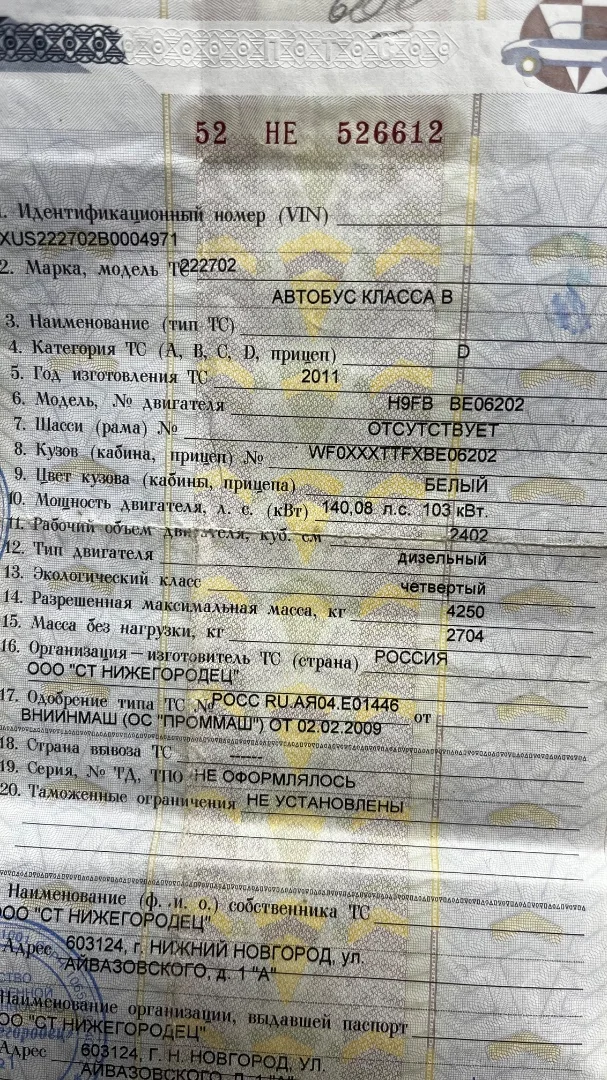 52 НЕ 526612
1. Идентификационный номер (VIN)
XUS222702B0004971
2. Марка, модель ТС 222702
АВТОБУС КЛАССА В
3. Наименование (тип ТС)
4. Категория ТС (А, В, С, D, прицеп) D
5. Год изготовления ТС 2011
6. Модель, № двигателя H9FB BE06202
7. Шасси (рама) № ОТСУТСТВУЕТ
8. Кузов (кабина, прицеп) № WF0XXXTTFXBE06202
9. Цвет кузова (кабины, прицепа) БЕЛЫЙ
10. Мощность двигателя, л. с. (кВт) 140,08 л.с. 103 кВт.
11. Рабочий объем двигателя, куб. см 2402
12. Тип двигателя дизельный
13. Экологический класс четвертый
14. Разрешенная максимальная масса, кг 4250
15. Масса без нагрузки, кг 2704
16. Организация—изготовитель ТС (страна) РОССИЯ
ООО "СТ НИЖЕГОРОДЕЦ"
17. Одобрение типа ТС № РОСС RU.АЯ04.Е01446 от
ВНИИНМАШ (ОС "ПРОММАШ") ОТ 02.02.2009
18. Страна вывоза ТС -----
19. Серия, № ТД, ТПО НЕ ОФОРМЛЯЛОСЬ
20. Таможенные ограничения НЕ УСТАНОВЛЕНЫ
Наименование (ф. и. о.) собственника ТС
ООО "СТ НИЖЕГОРОДЕЦ"
Адрес 603124, г. НИЖНИЙ НОВГОРОД, ул.
АЙВАЗОВСКОГО, д. 1 "А"
Наименование организации, выдавшей паспорт
ООО "СТ НИЖЕГОРОДЕЦ"
Адрес 603124, Г. Н. НОВГОРОД, УЛ.
АЙВАЗОВСКОГО, Д. 1 "А"